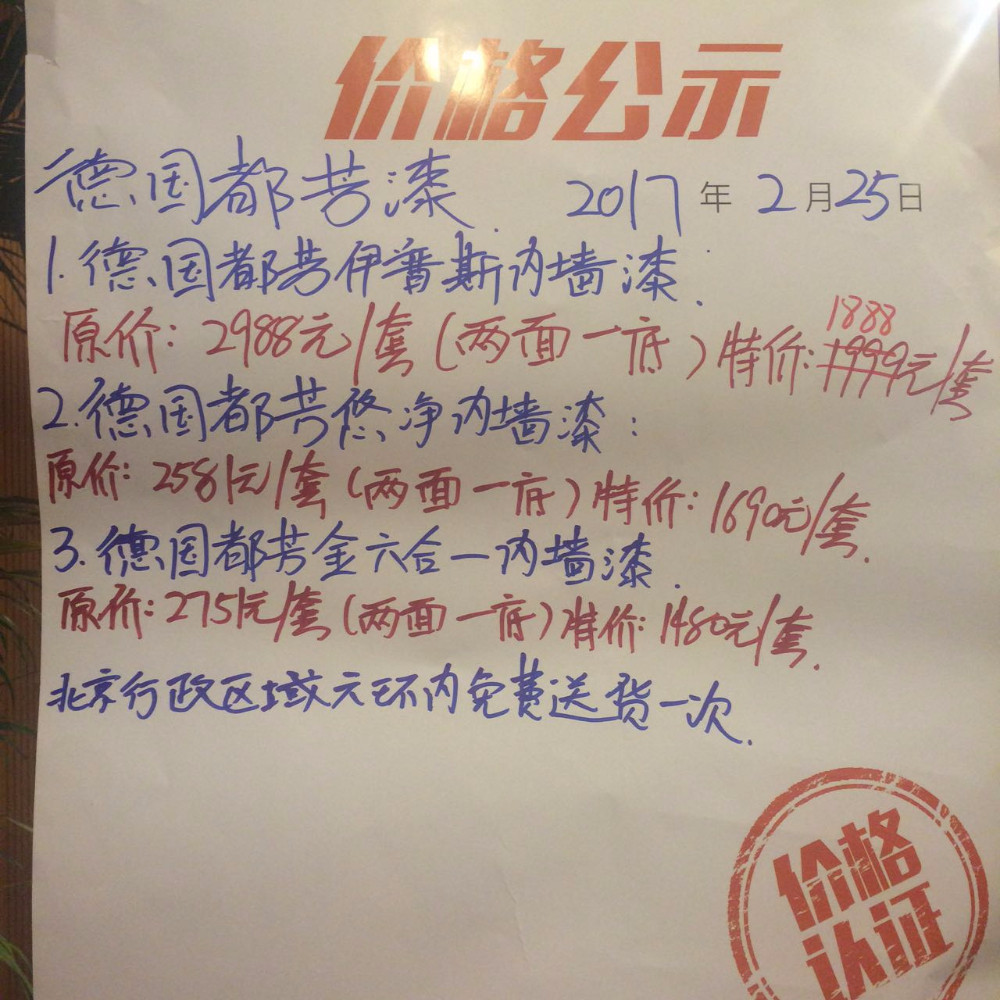 价格公示
德国都芳漆. 2017年2月25日
1.德国都芳伊普斯内墙漆:
原价:2988元/套(两面一底)特价:1999元/套
1888
2.德国都芳悠净内墙漆:
原价:2581元/套(两面一底)特价:1690元/套.
3.德国都芳金六合一内墙漆.
原价:2751元/套(两面一底)特价:1480元/套.
北京行政区域六环内免费送货一次.
价格
认证